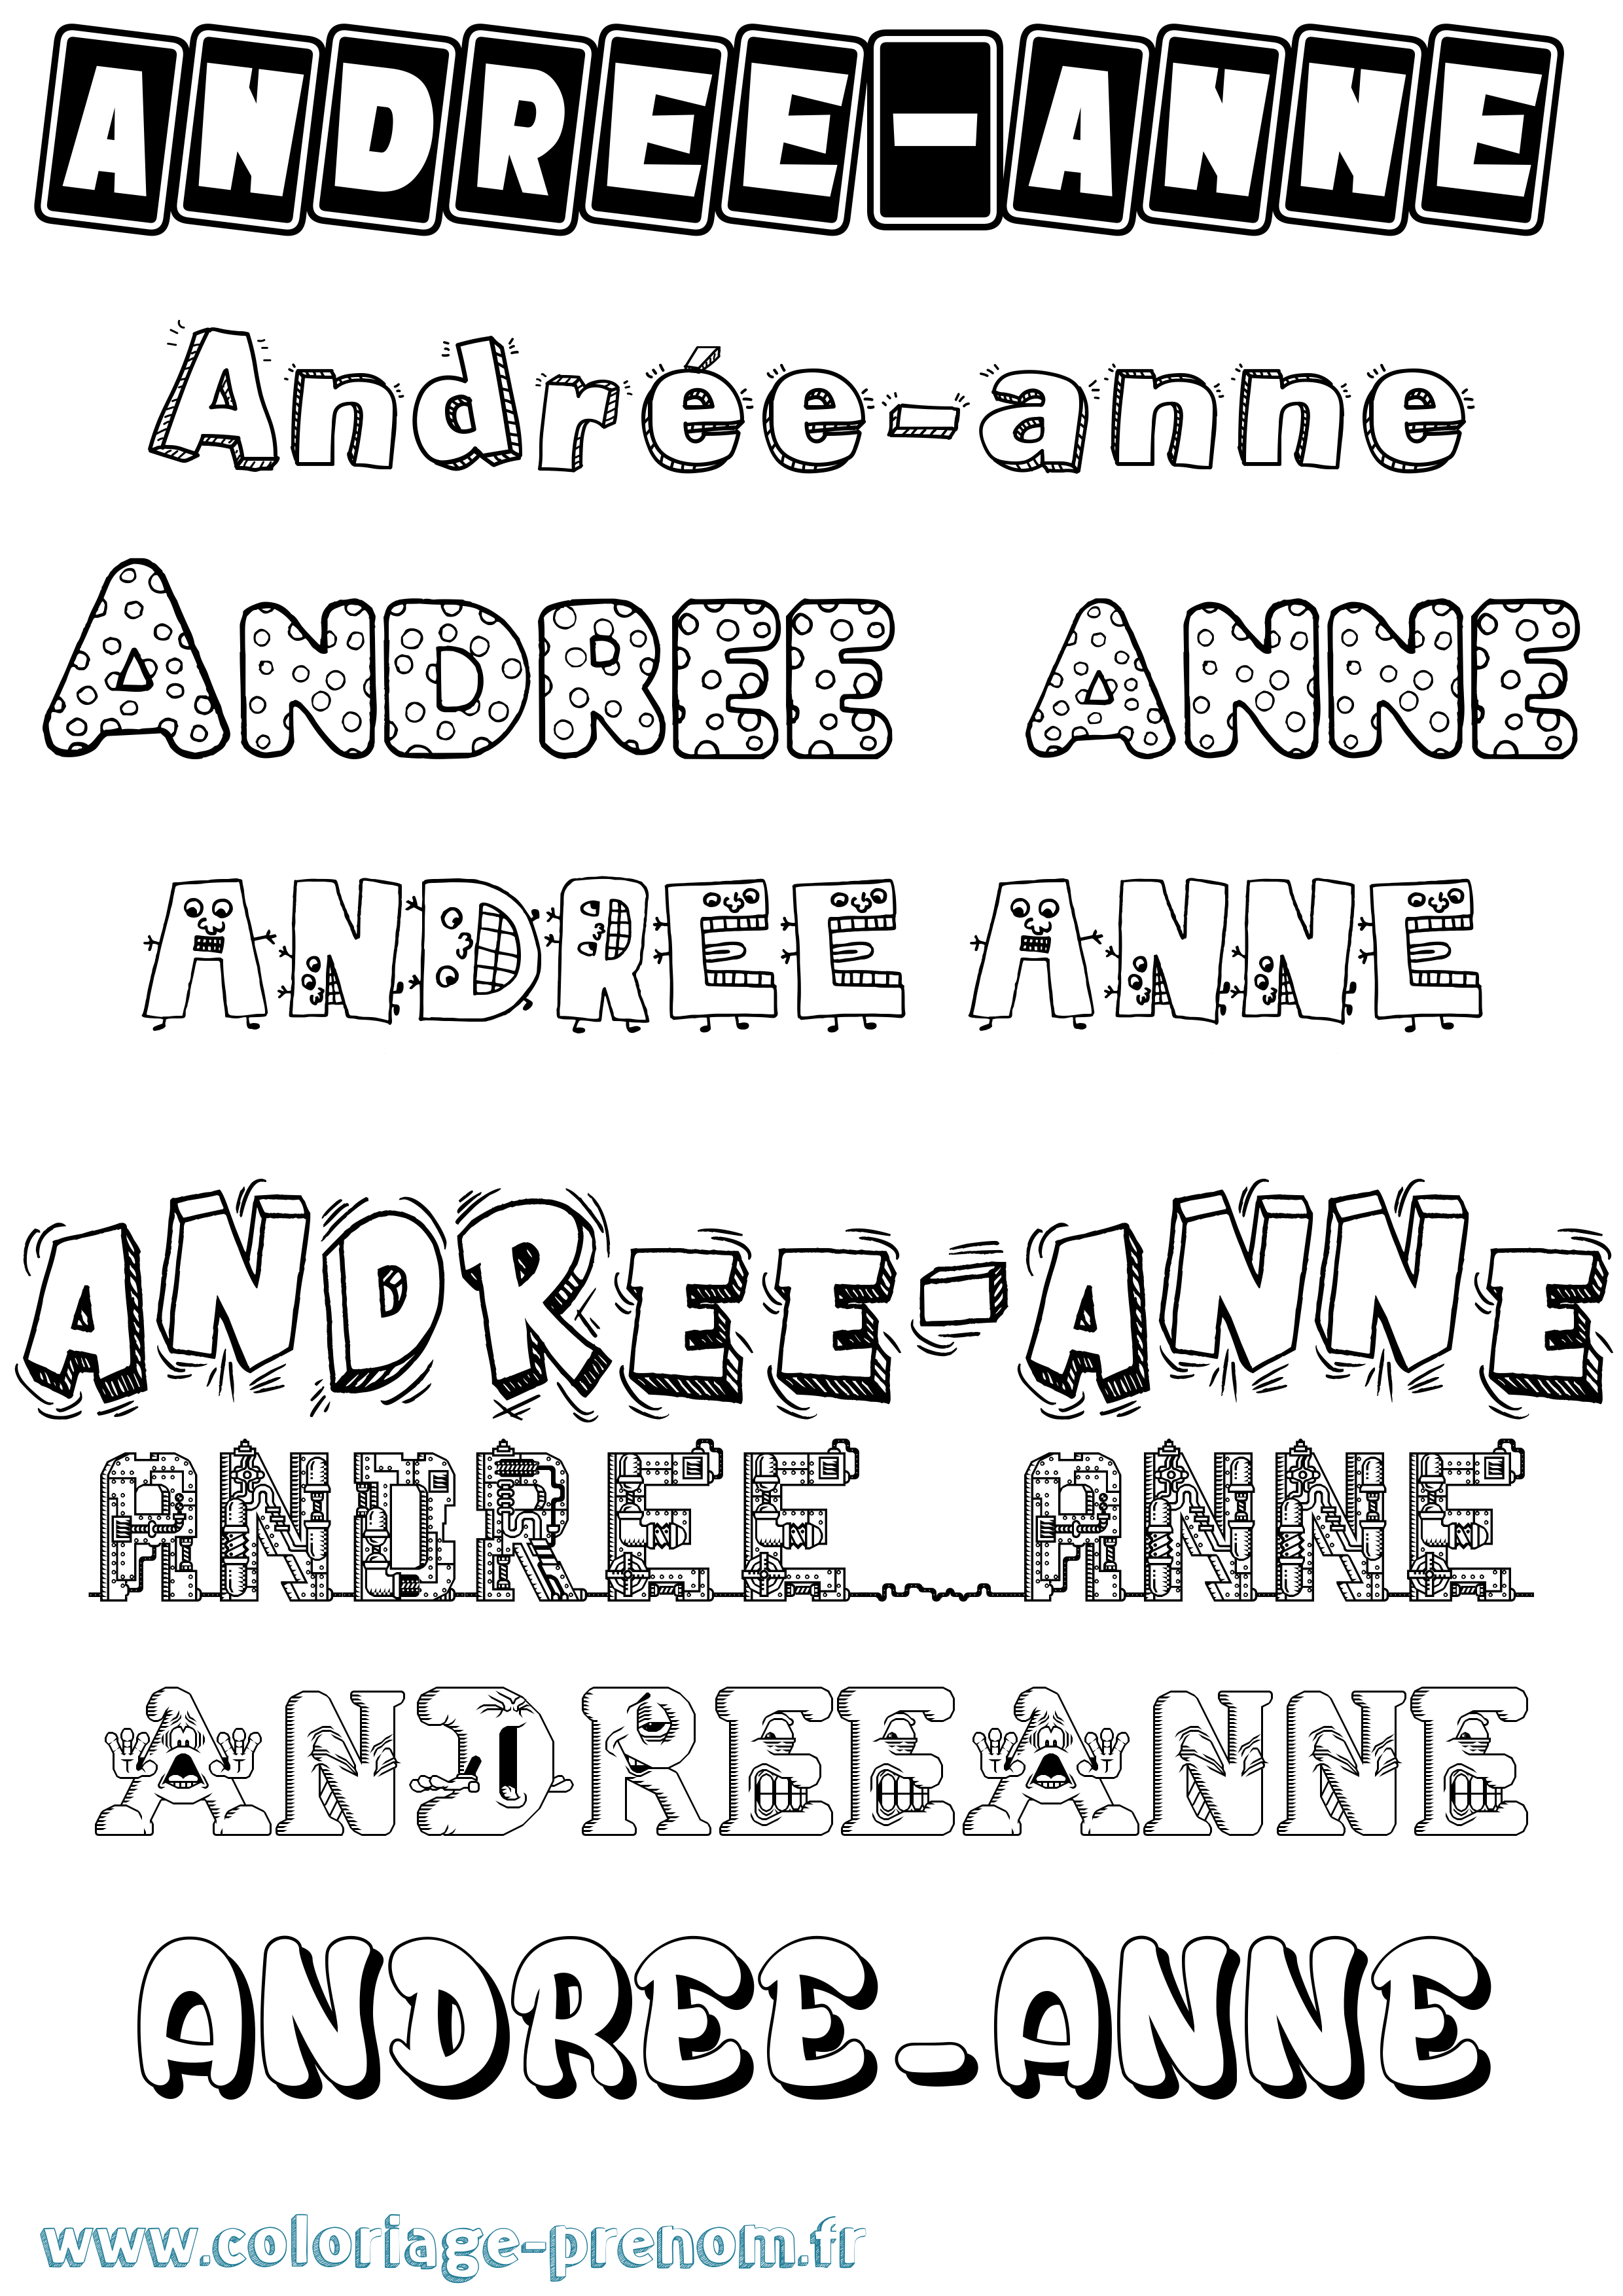 ANDREE-ANNE
Andrée-anne
ANDREE ANNE
ANDREE ANNE
ANDREE-ANNE
ANDREE ANNE
ANDREEANNE
ANDREE-ANNE
www.coloriage-prenom.fr